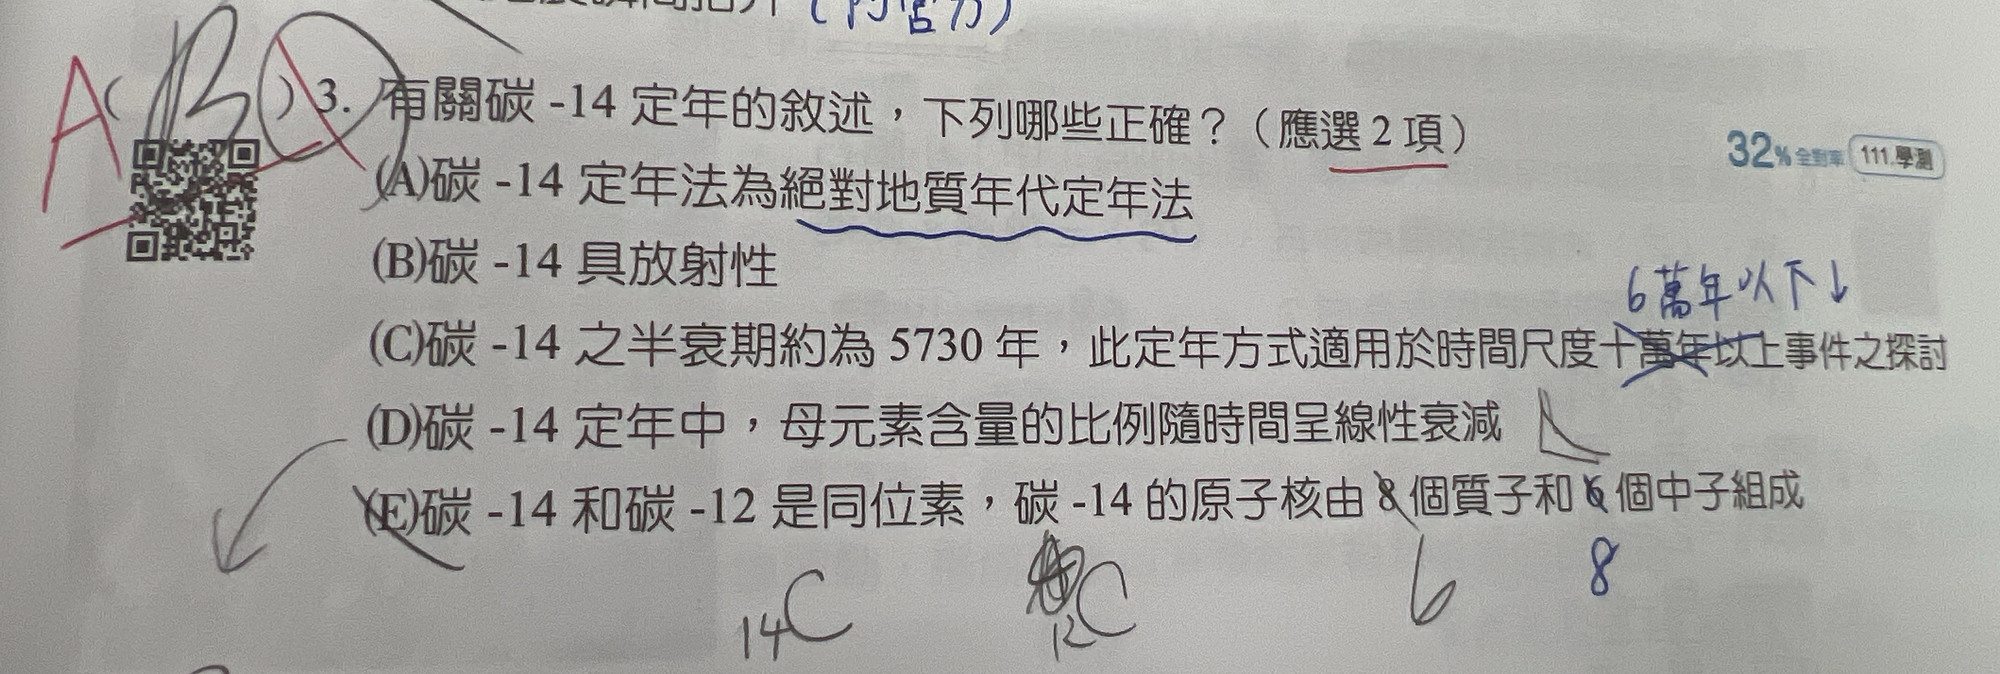 (內營力)
A( B )3. 有關碳 -14 定年的敘述，下列哪些正確？（應選 2 項） 32% 全對率 111.學測
(A)碳 -14 定年法為絕對地質年代定年法
(B)碳 -14 具放射性
6萬年以下↓
(C)碳 -14 之半衰期約為 5730 年，此定年方式適用於時間尺度十萬年以上事件之探討
(D)碳 -14 定年中，母元素含量的比例隨時間呈線性衰減
(E)碳 -14 和碳 -12 是同位素，碳 -14 的原子核由 8 個質子和 6 個中子組成
14C 12C 6 8